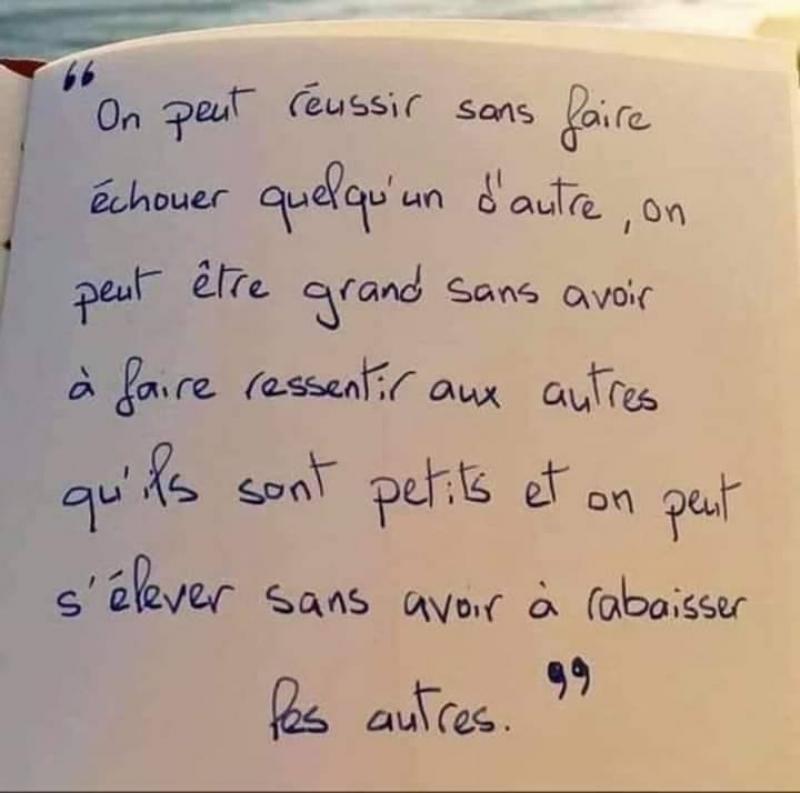 “ On peut réussir sans faire
échouer quelqu'un d'autre, on
peut être grand sans avoir
à faire ressentir aux autres
qu'ils sont petits et on peut
s'élever sans avoir à rabaisser
les autres. ”